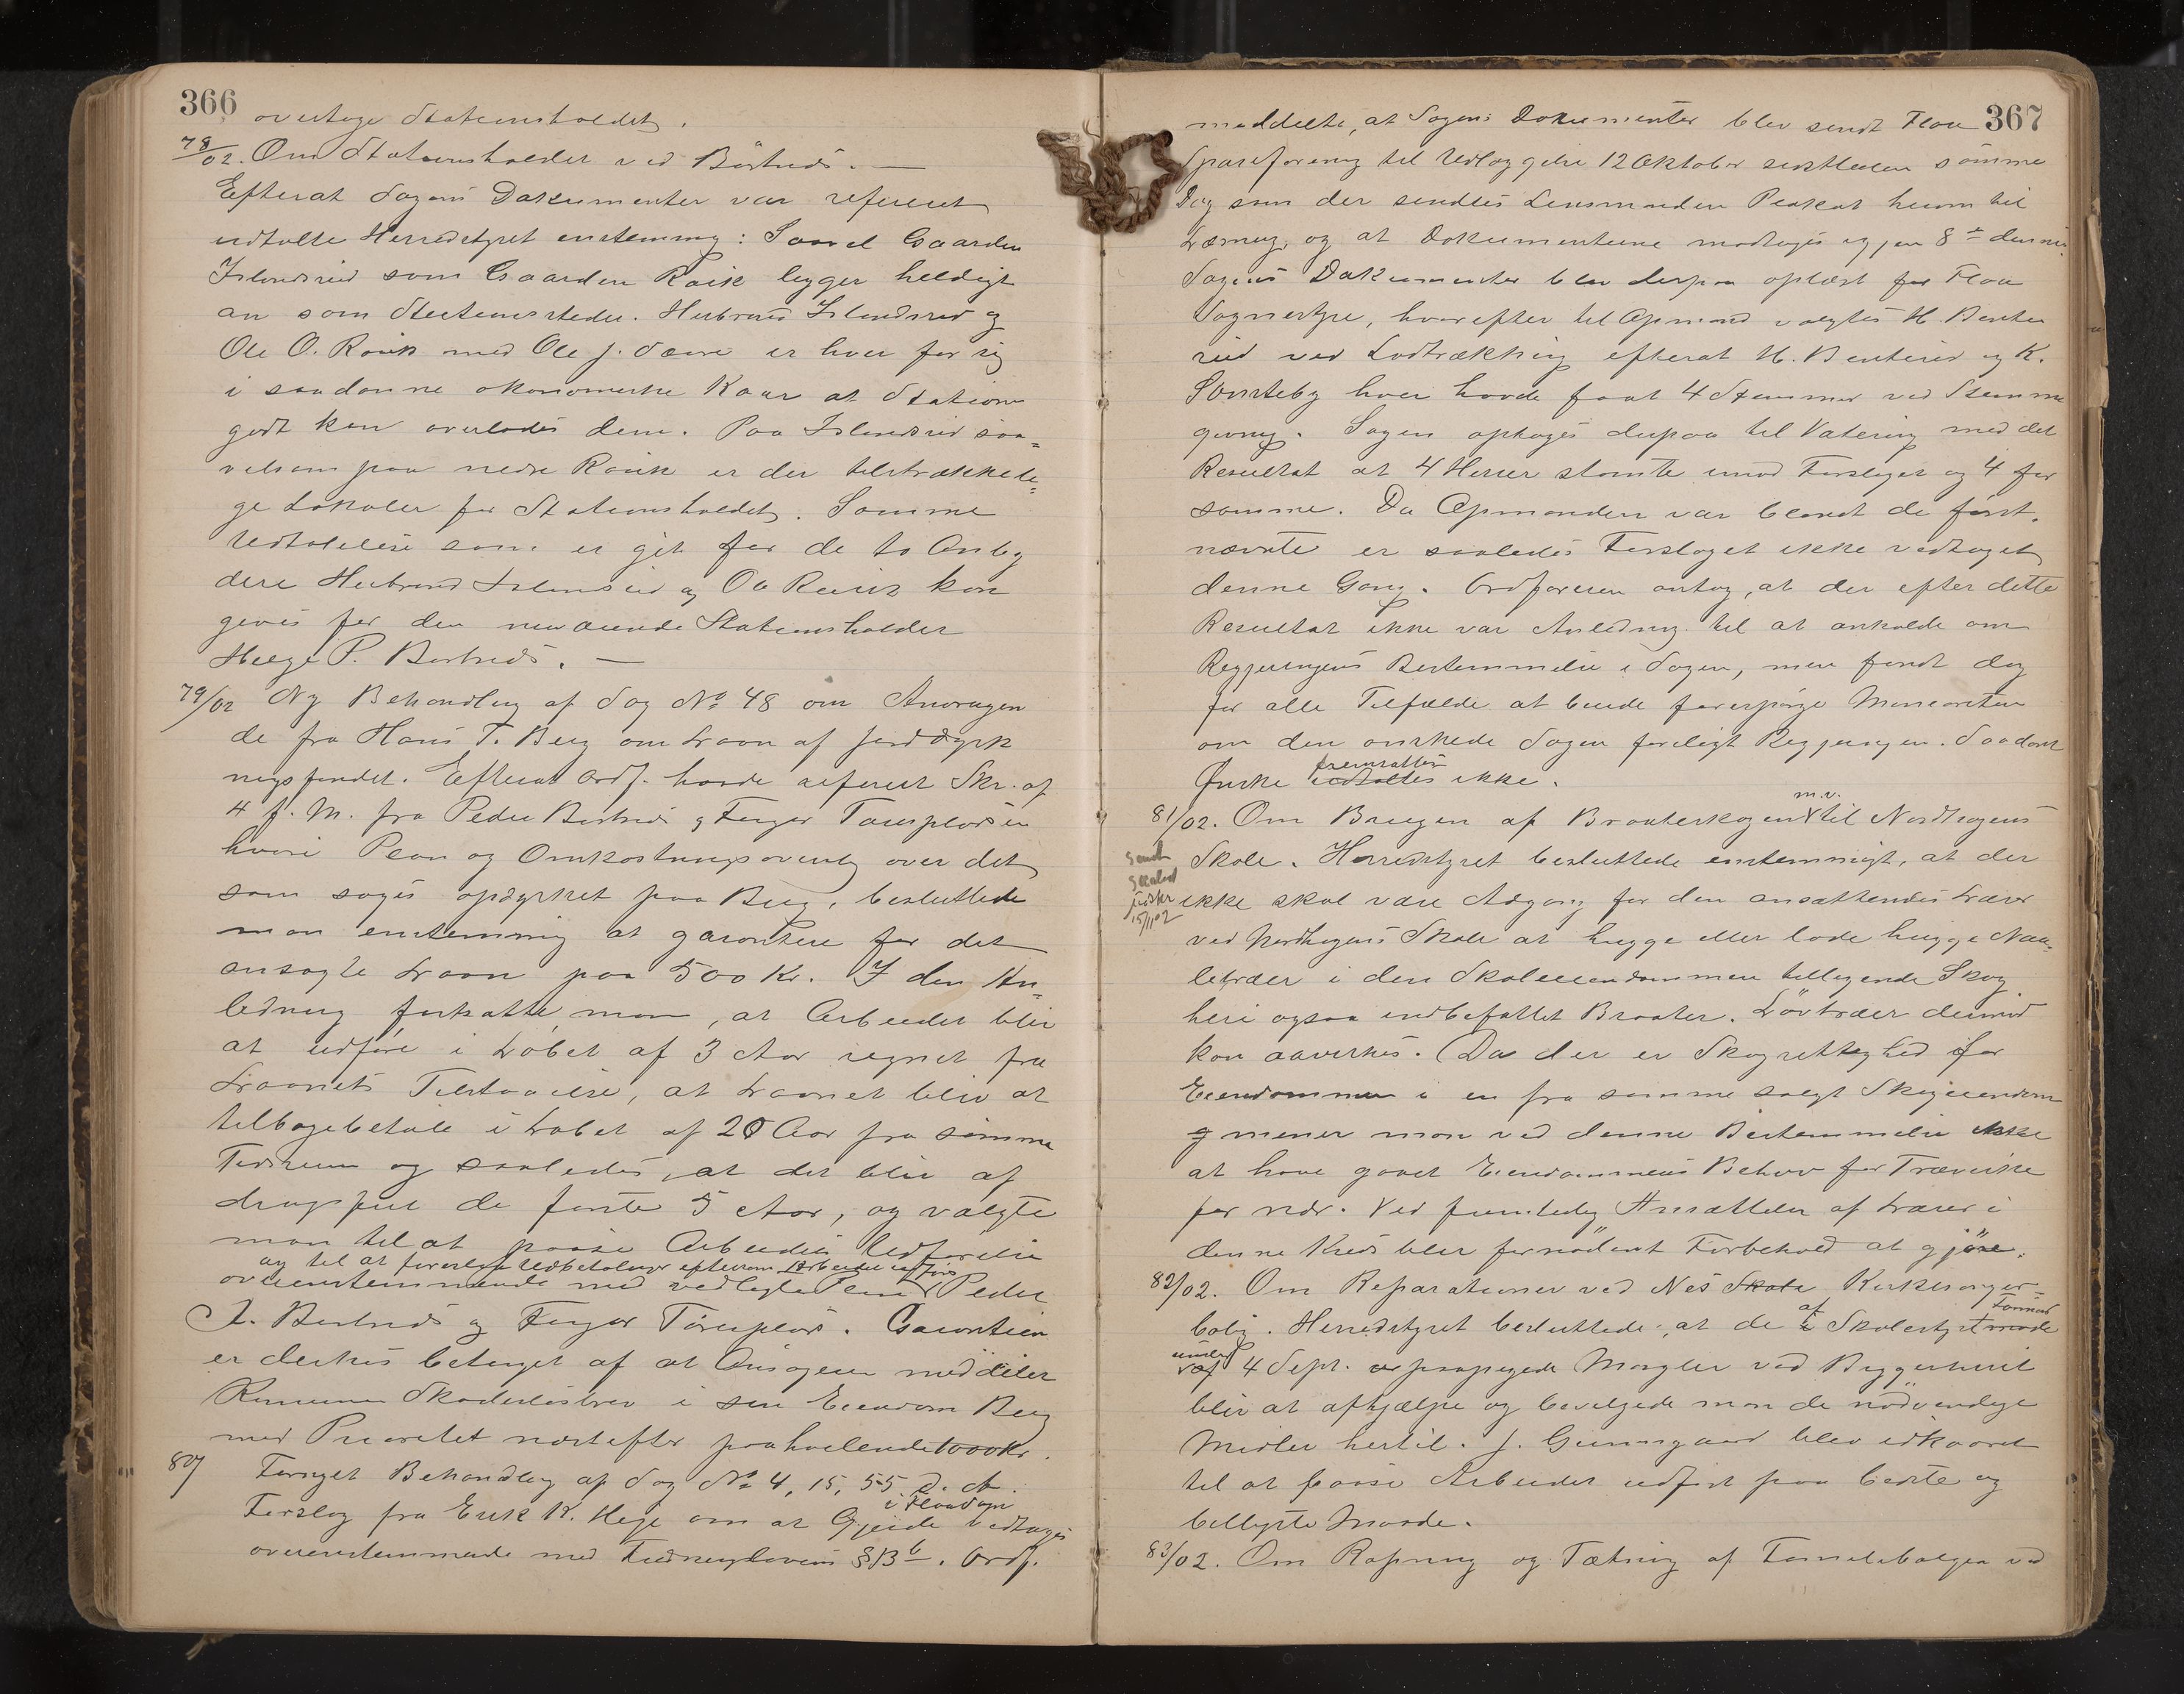 366
overtage Stationsholdet.
78/02. Om Stationsholdet ved Börtnes. —
Efterat Sagens Dokumenter var refereret
udtalte Herredstyret enstemmig: Saavel Gaarden
Islandsrud som Gaarden Roik legger heldigt
an som Stationssteder. Herbrand Islandsrud og
Ole O. Roik med Ole J. Sevre er hver for sig
i saadanne økonomiske Kaar at Station
godt kan overlades dem. Paa Islandsrud saa=
velsom paa nedre Roik er der tilstrækkeli=
ge Lokaler for Stationsholdet. Samme
Udtalelse som er git for de to Anby
dere Herbrand Islandsrud og Ole Roik kan
gives for den nuværende Stationsholder
Helge P. Bortnes. —
79/02 Ny Behandling af Sag No 48 om Anragen
de fra Hans T. Berg om Laan af Jorddyrk
ningsfondet. Efterat Ordf. havde refereret Skr. af
4 f. M. fra Peder Bortnes og Finger
hvori Plan og Omkostningsoverslag over det
som søges opdyrket paa Berg, besluttede
man enstemmig at garantere for det
ansøgte Laan paa 500 Kr. I den An=
ledning forhatte man, at Arbeidet blir
at udføre i Løbet af 3 Aar regnet fra
Laanets Tilstaaelse, at Laanet blir at
tilbagebetale i Løbet af 20 Aar fra samme
Tidsrum og saaledes, at det blir af
dragsfrit de første 5 Aar, og valgte
man til at paase Arbeidets Udførelse
og til at forestaa Udbetalinger eftersom Arbeidet udføres
overenstemmende med vedlagte Plan Peder
A. Bortnes og Finger. Garantien
er derhos betinget af at Ansøgeren meddeler
Kommunen Skadesløsbrev i sin Eiendom Berg
med Prioritet næstefter paahvilende 1000 Kr.
80/ Fornyet Behandling af Sag No 4, 15, 55 D. A.
Forslag fra Erik K. Hege om at Gjeide i Flaa Sogn vedtages
overensstemmende med Fredningslovens § 13 b. Ordf.
367
meddelte, at Sagens Dokumenter blev sendt Flaa
Spareforening til Udlæggelse 12 Oktober sidstleden samme
Dag som der sendtes Lensmanden Plakat herom til
Læsning, og at Dokumenterne modtoges igjen 8de dennes.
Sagens Dokumenter blev derpaa oplæst for Flaa
Sognestyre, hvorefter til Opmand valgtes H. Bente
rud ved Lodtrækking efterat H. Benterud og K.
Sønsteby hver havde faat 4 Stemmer ved Stemme
givning. Sagen optoges derpaa til Votering med det
Resultat at 4 Herrer stemte imod Forslaget og 4 for
samme. Da Opmanden var blandt de først=
nævnte er saaledes Forslaget ikke vedtaget
denne Gang. Ordføreren antog, at der efter dette
Resultat ikke var Anledning til at anholde om
Regjeringens Bestemmelse i Sagen, men fandt dog
for alle Tilfælde at burde forespørge Minoriteten
om den ønskede Sagen forelagt Regjeringen. Saadant
Ønske fremsattes udtaltes ikke.
81/02. Om Brugen af Braaterskogen m.v. til Nordhagens
Skole. Herredstyret besluttede enstemmigt, at der
ikke skal være Adgang for den ansættendes Lærer
ved Nordhagens Skole at hugge eller lade hugge Naa=
letræer i den Skoleeiendommen tilliggende Skog
heri ogsaa indbefattet Braaten. Lövtræer derimod
kan aavirkes. Da der er Skogrettighed for
Eiendommen i en fra samme solgt Skogeiendom
mener man ved denne Bestemmelse ikke
at have gaaet Eiendommens Behov for Trævirke
for nær. Ved fremtidig Ansættelse af Lærer i
denne Kreds blir fornödent Forbehold at gjöre.
82/02. Om Reparationer ved Nes Skole Kirkesanger=
bolig. Herredstyret besluttede, at de af Skolestyret
under 4 Sept. paapegede Mangler ved Bygverket
blir at afhjælpe og bevilgede man de nödvendige
Midler hertil. J. Gunnggaard blev udkaaret
til at paase Arbeidet udført paa bedste og
billigste Maade.
83/02. Om Rapning og Tætning af Familiebolgen ved
15/11 02